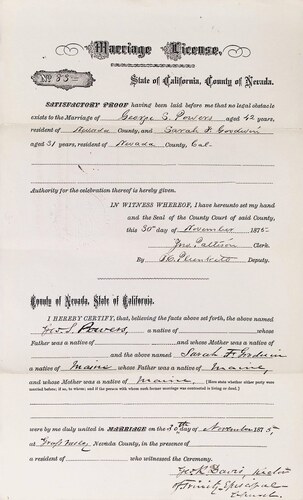 Marriage License.
No. 83
State of California, County of Nevada.
SATISFACTORY PROOF having been laid before me that no legal obstacle
exists to the Marriage of George S. Powers aged 42 years,
resident of Nevada County, and Sarah F. Goodwin
aged 31 years, resident of Nevada County, Cal.
Authority for the celebration thereof is hereby given.
IN WITNESS WHEREOF, I have hereunto set my hand
and the Seal of the County Court of said County,
this 30th day of November 1875
Jno. Pattison Clerk.
By Deputy.
County of Nevada, State of California.
I HEREBY CERTIFY, that, believing the facts above set forth, the above named
Geo. S. Powers, a native of whose
Father was a native of and whose Mother was a native of
and the above named Sarah F. Goodwin
a native of Maine whose Father was a native of Maine,
and whose Mother was a native of Maine,
were by me duly united in MARRIAGE on the 30th day of November 1875,
at Grass Valley, Nevada County, in the presence of
a resident of who witnessed the Ceremony.
Geo. R. Davis, Rector
of Trinity Episcopal
Church